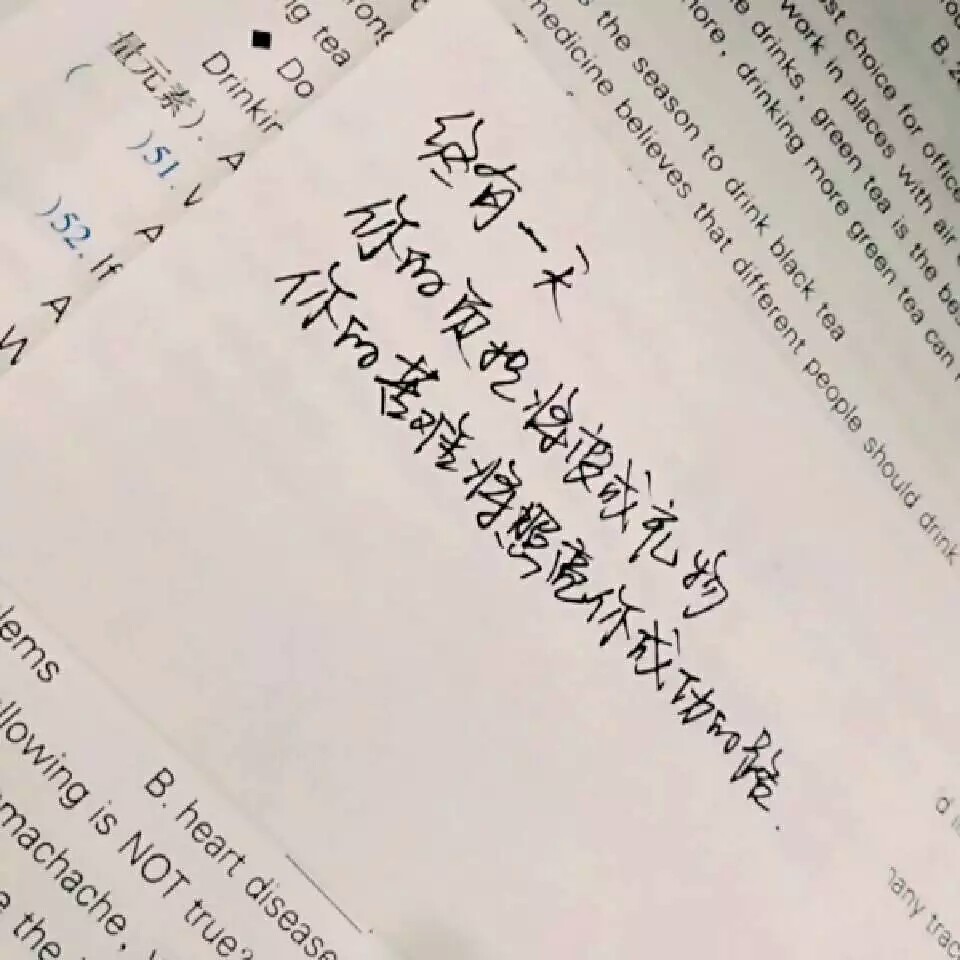 终有一天
你的负担将变成礼物
你的苦难将照亮你成功的路.
rong
ng tea
■ Do
Drinkin
量元素). A
( )51. V
A
)52. If
A
W
B. 2
ost choice for office
work in places with air
e drinks, green tea is the bes
more, drinking more green tea can
s the season to drink black tea
medicine believes that different people should drink
lems
B. heart disease
llowing is NOT true?
machache,
e the
d
many trac